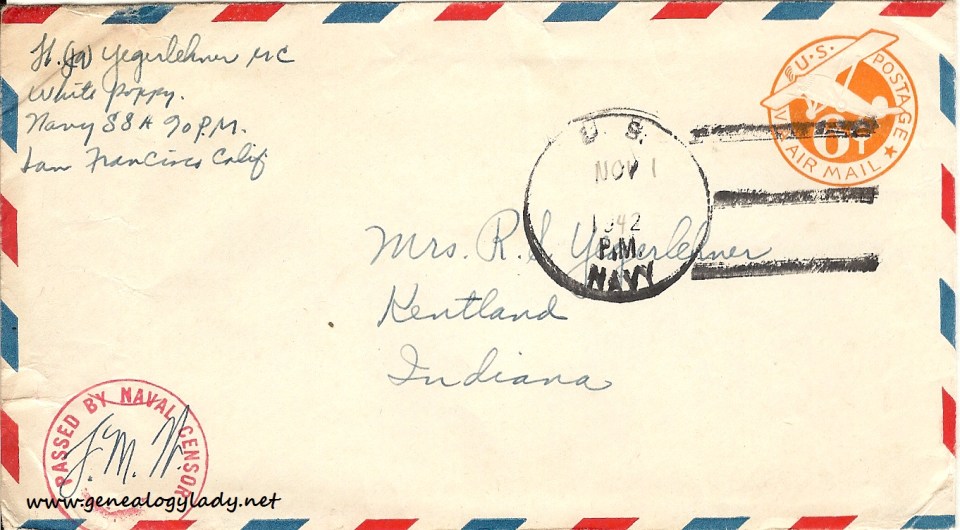 Lt. (jg) Yegerlehner MC
White Poppy.
Navy 88H 90 P.M.
San Francisco Calif
U.S. POSTAGE
6¢
VIA AIR MAIL
U. S.
NOV 1
1942
P.M.
NAVY
Mrs. R. S Yegerlehner
Kentland
Indiana
PASSED BY NAVAL CENSOR
J. M. W.
www.genealogylady.net